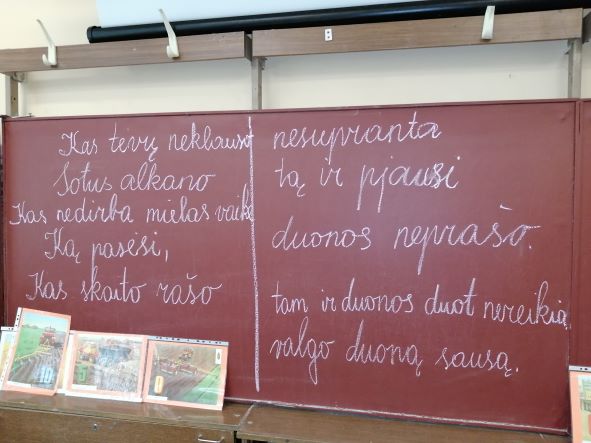 Kas tėvų neklauso
Sotus alkano
Kas nedirba mielas vaike
Ką pasėsi,
Kas skaito rašo
nesupranta
tą ir pjausi
duonos neprašo.
tam ir duonos duot nereikia,
valgo duoną sausą.